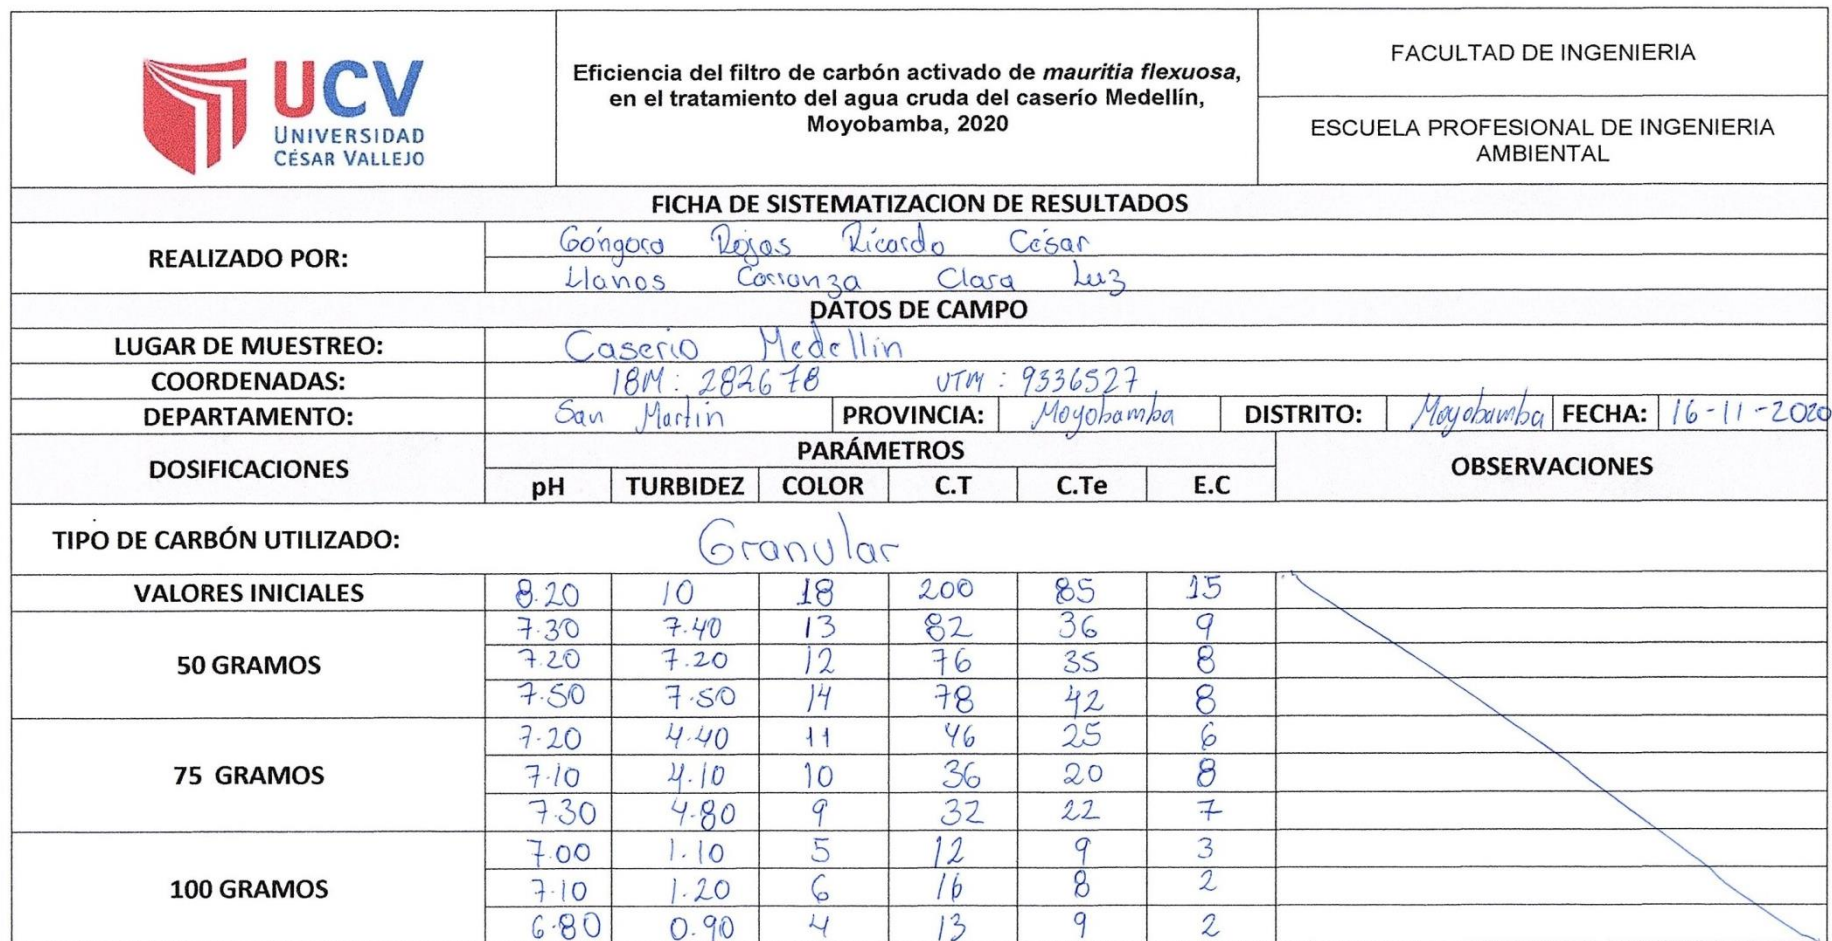 UCV
UNIVERSIDAD
CÉSAR VALLEJO
Eficiencia del filtro de carbón activado de mauritia flexuosa,
en el tratamiento del agua cruda del caserío Medellín,
Moyobamba, 2020
FACULTAD DE INGENIERIA
ESCUELA PROFESIONAL DE INGENIERIA
AMBIENTAL
FICHA DE SISTEMATIZACION DE RESULTADOS
REALIZADO POR:
Góngora Rojas Ricardo César
Llanos Carranza Clara Luz
DATOS DE CAMPO
LUGAR DE MUESTREO: Caserio Medellin
COORDENADAS: 18M: 282678 UTM: 9336527
DEPARTAMENTO: San Martin PROVINCIA: Moyobamba DISTRITO: Moyobamba FECHA: 16-11-2020
DOSIFICACIONES PARÁMETROS OBSERVACIONES
pH TURBIDEZ COLOR C.T C.Te E.C
TIPO DE CARBÓN UTILIZADO: Granular
VALORES INICIALES 8.20 10 18 200 85 15
7.30 7.40 13 82 36 9
50 GRAMOS 7.20 7.20 12 76 35 8
7.50 7.50 14 78 42 8
7.20 4.40 11 46 25 6
75 GRAMOS 7.10 4.10 10 36 20 8
7.30 4.80 9 32 22 7
7.00 1.10 5 12 9 3
100 GRAMOS 7.10 1.20 6 16 8 2
6.80 0.90 4 13 9 2